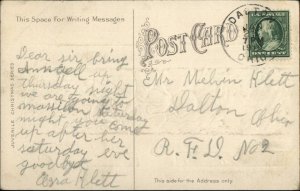 This Space for Writing Messages
POST CARD
DALTON
OHIO
JUVENILE CHRISTMAS SERIES
Dear sir bring
up
thursday night
we are going to
massillon saturday
night, you come
up after her
saturday eve
goodbye
Klett
Mr Melvin Klett
Dalton Ohio
R. F. D. No 2
This side for the Address only.